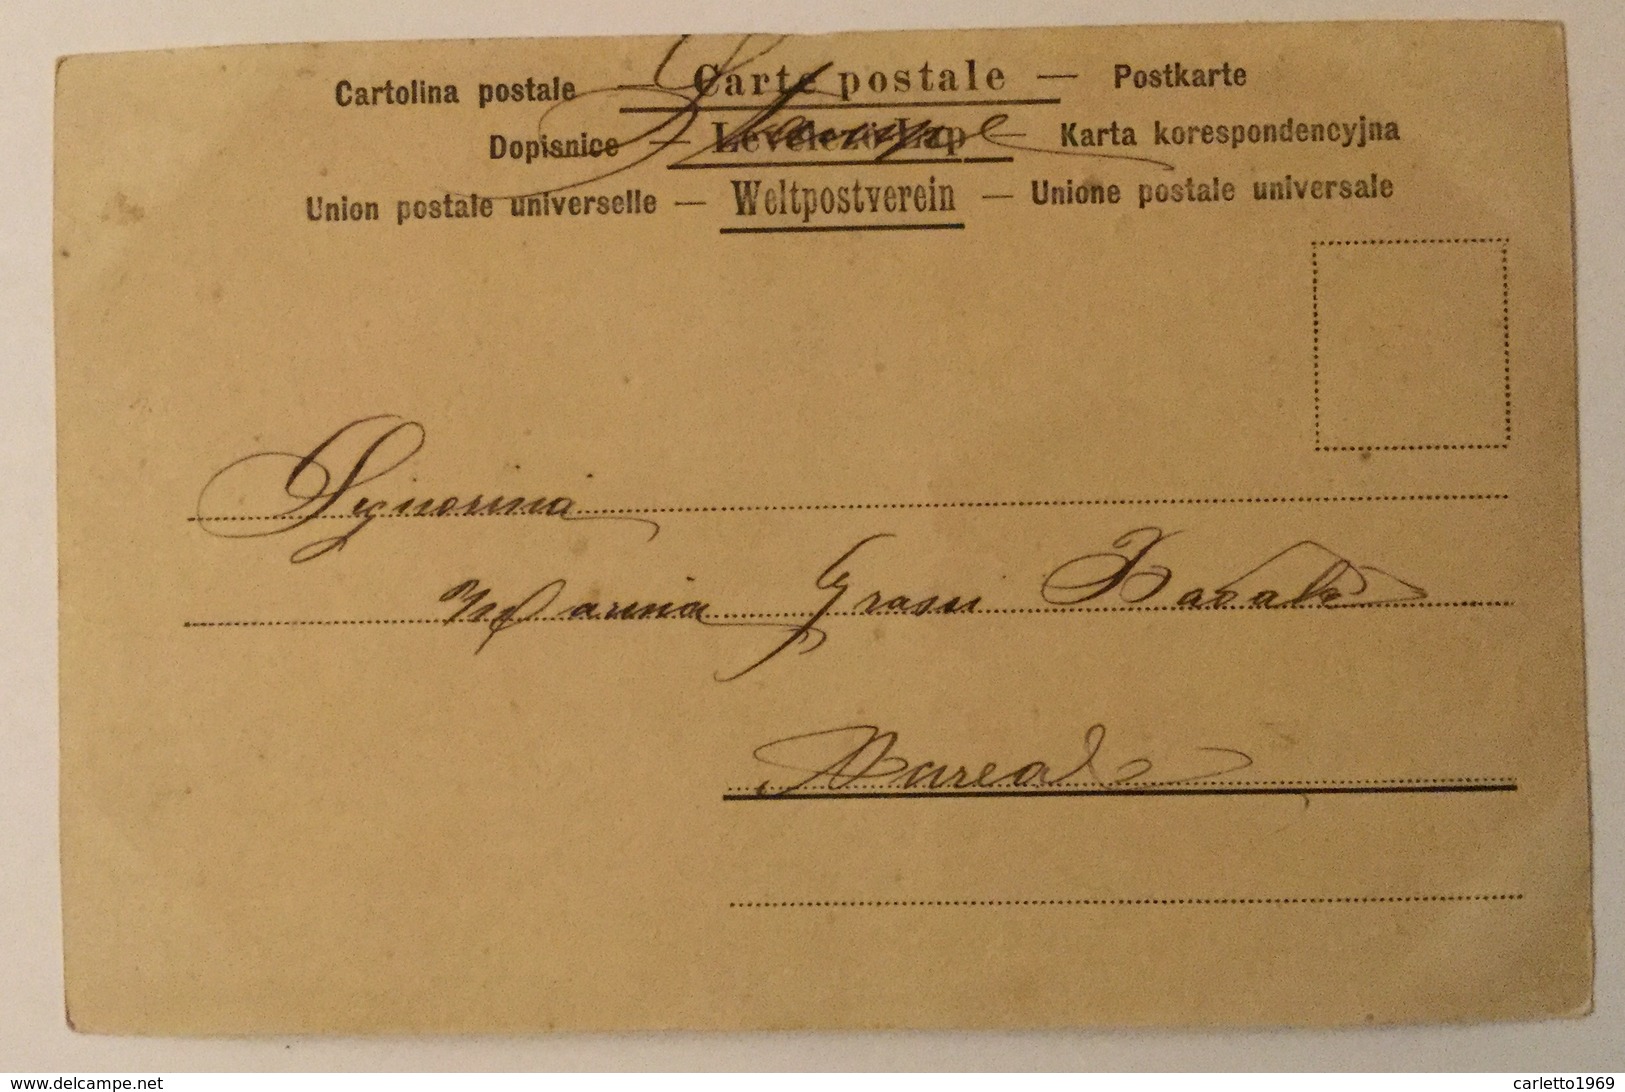 Cartolina postale — Carte postale — Postkarte
Dopisnice — Levelező-Lap — Karta korespondencyjna
Union postale universelle — Weltpostverein — Unione postale universale
Signorina
Marina Grassi
delcampe.net
carletto1969